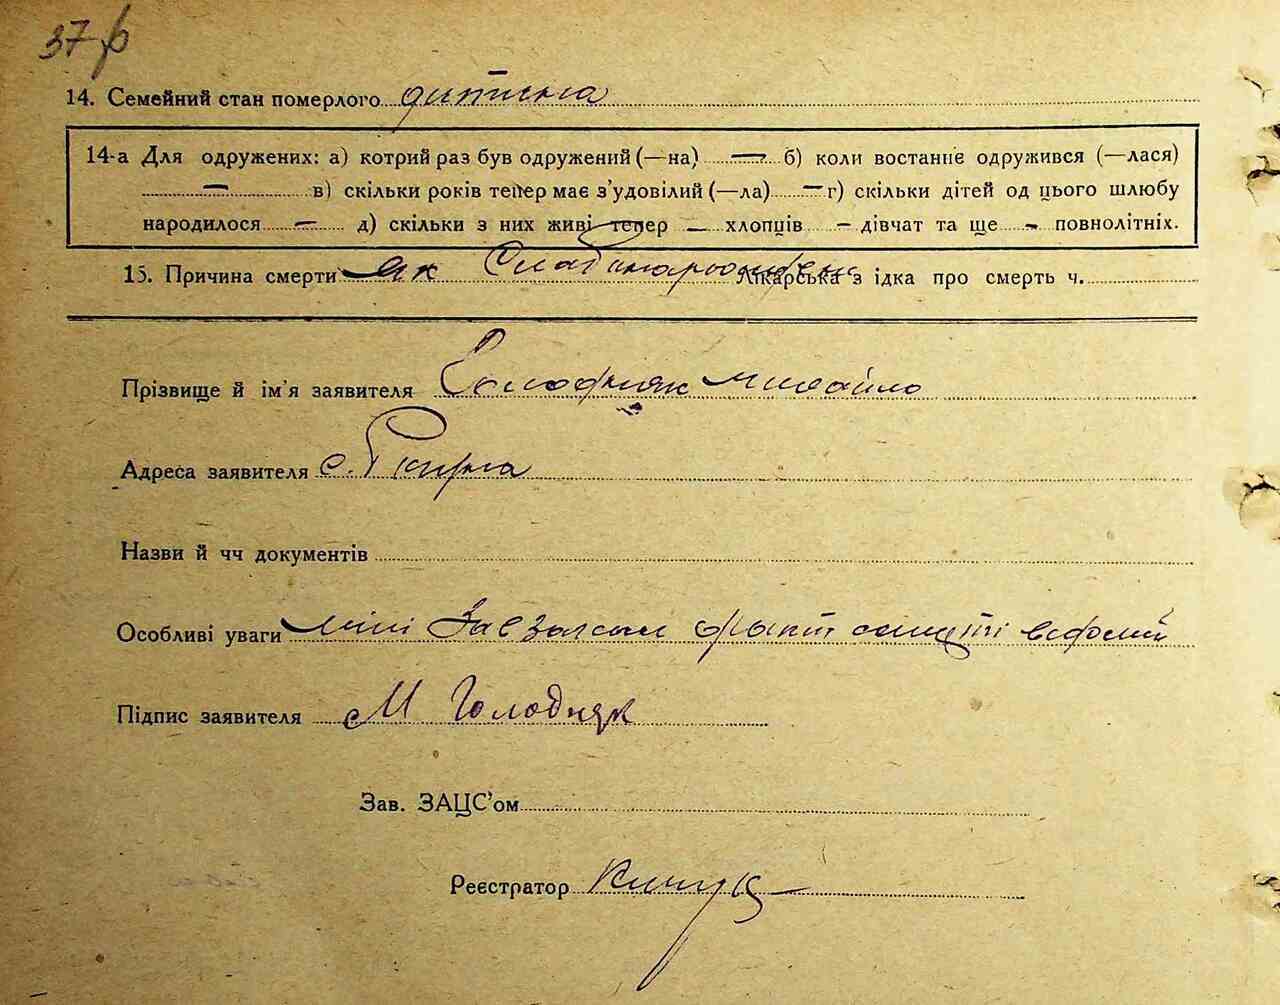 37
14. Семейний стан померлого дитина
14-а Для одружених: а) котрий раз був одружений (—на) — б) коли востаннє одружився (—лася)
— в) скільки років тепер має з'удовілий (—ла) — г) скільки дітей од цього шлюбу
народилося — д) скільки з них живі тепер — хлопців — дівчат та ще — повнолітніх.
15. Причина смерти як Слабонароджен Лікарська з ідка про смерть ч.
Прізвище й ім'я заявителя Голодняк Михайло
Адреса заявителя с.
Назви й чч документів
Особливі уваги мні факт смерті
Підпис заявителя М Голодняк
Зав. ЗАЦС'ом
Реєстратор